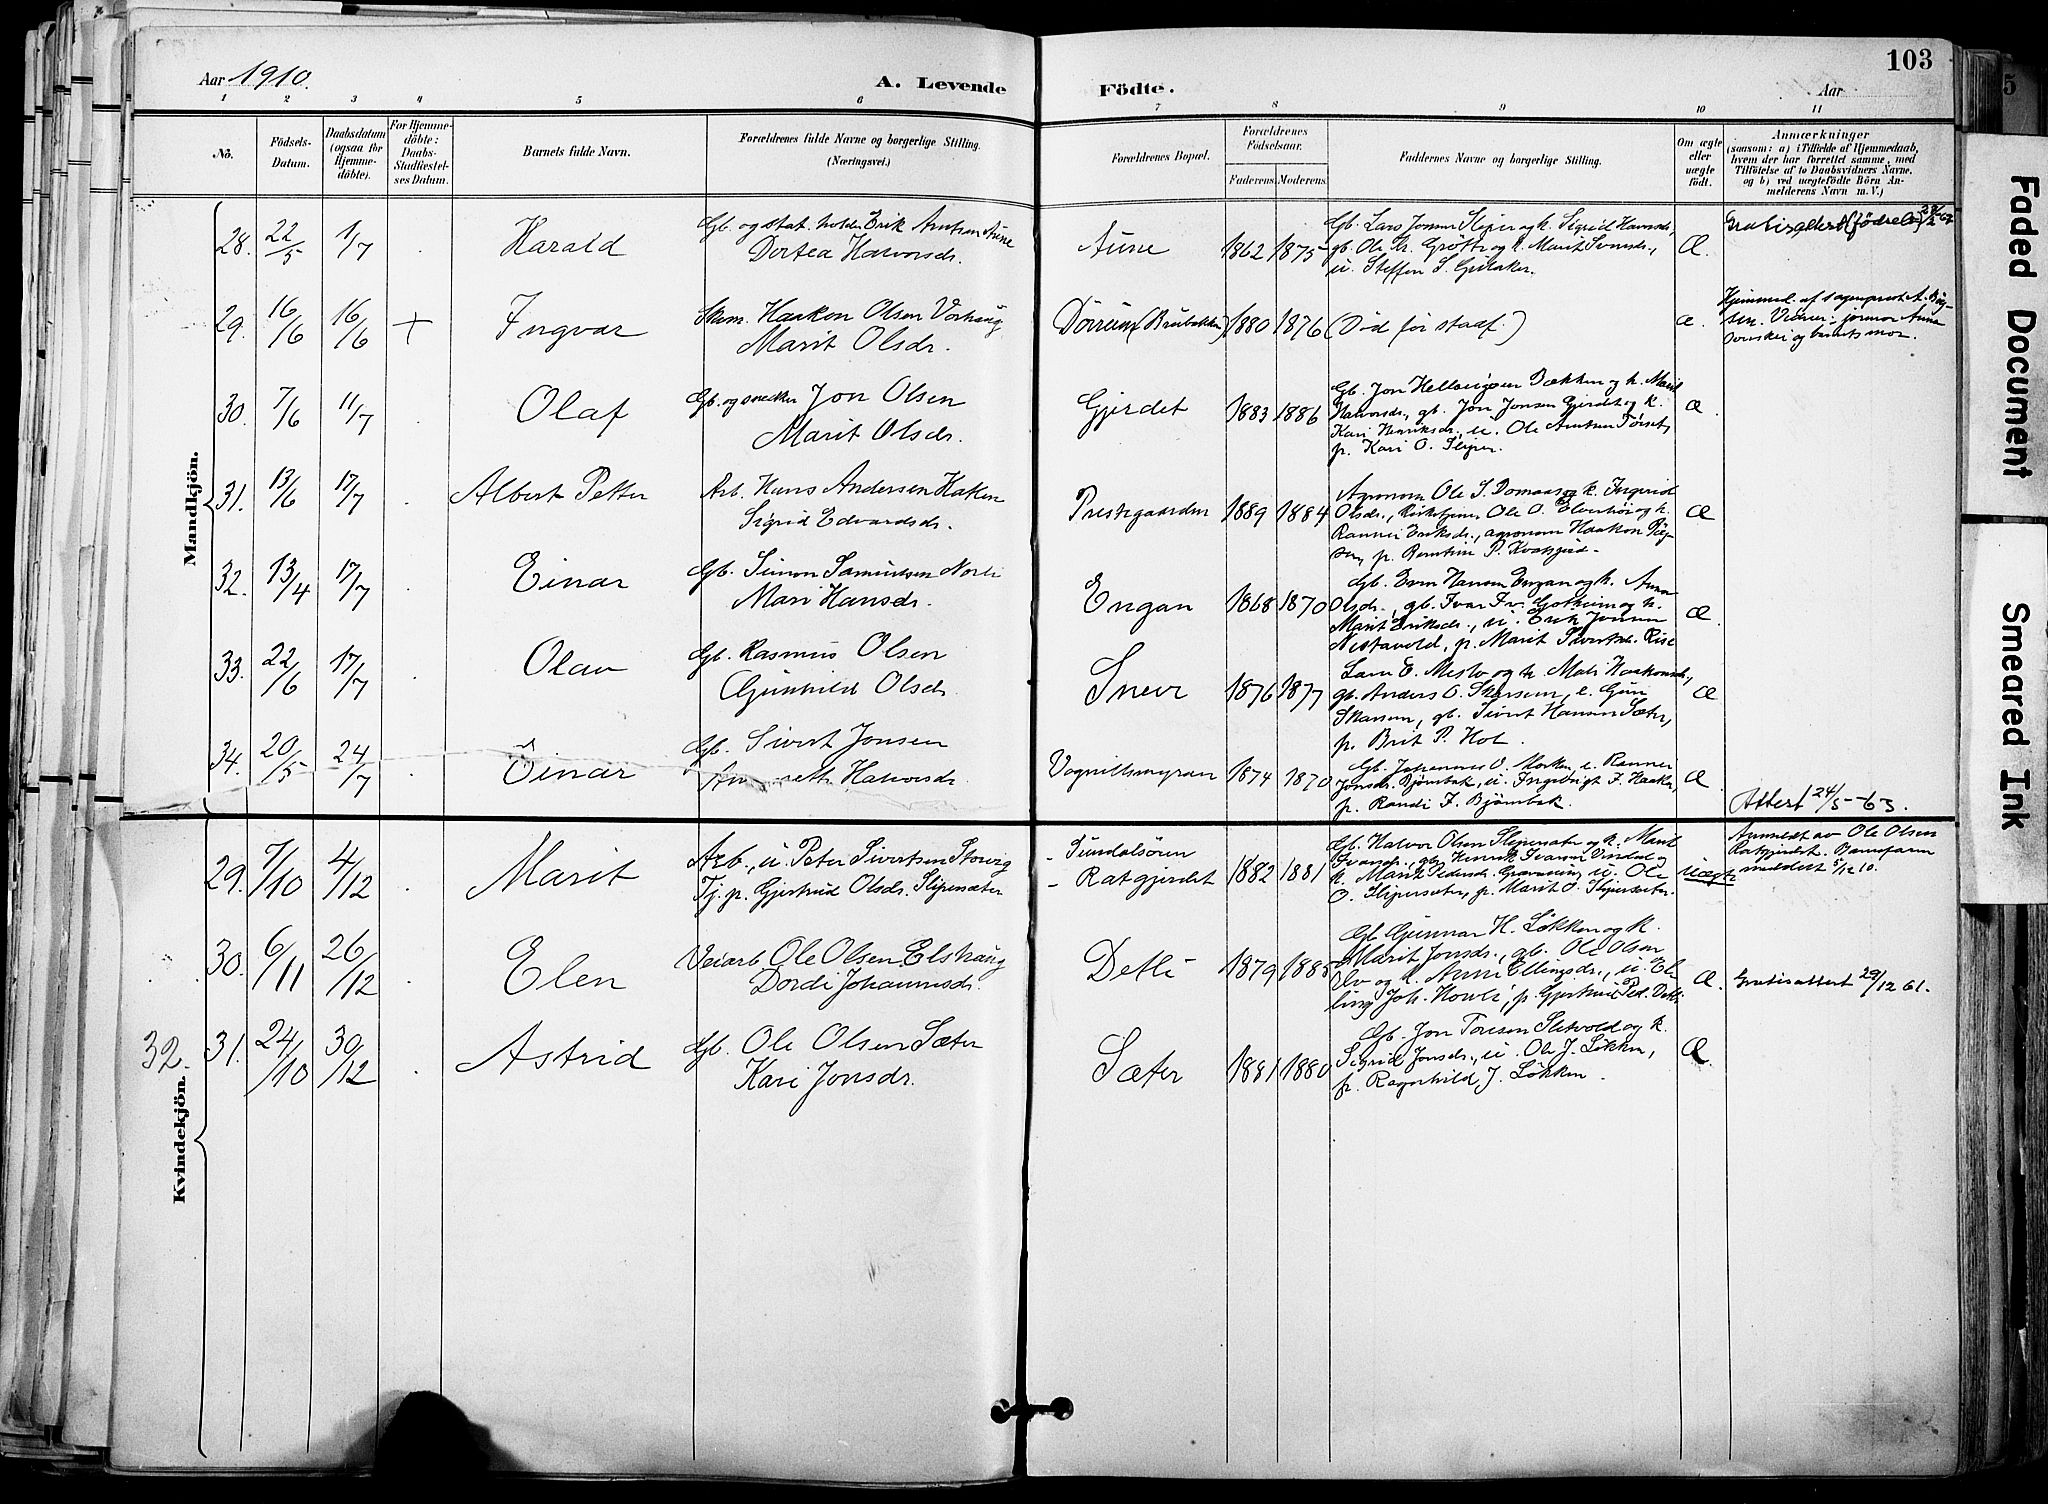 103
Aar 1910.
A. Levende Födte.
Aar
1 2 3 4 5 6 7 8 9 10 11
No.
Födsels-
Datum.
Daabsdatum
(ogsaa for
Hjemme-
döbte).
For Hjemme-
döbte:
Daabs-
Stadfæstel-
ses Datum.
Barnets fulde Navn.
Forældrenes fulde Navne og borgerlige Stilling.
(Næringsvei.)
Forældrenes Bopæl.
Forældrenes
Födselsaar.
Faderens. Moderens.
Faddernes Navne og borgerlige Stilling.
Om ægte
eller
uægte
födt.
Anmærkninger
(saasom: a) i Tilfælde af Hjemmedaab,
hvem der har forrettet samme, med
Tilföielse af to Daabsvidners Navne,
og b) ved uægtefödte Börn An-
melderens Navn m. V.)
Mandkjön.
28. 22/5 1/7 Harald
Gb. og stat. holder Erik Arntsen Aune
Dortea Halvorsdr.
Aune 1862 1875
Gb. Lars Jonsen Sliper og k. Sigrid Halvorsdr.,
gb. Ole Gr. Grötte og k. Marit Svensdr.,
u. Steffen S. Gulaker.
Æ.
Gratisattest (fødsels)
29. 16/6 16/6 + Ingvar
Skom. Haakon Olsen Vorhaug
Marit Olsdr.
Dörreim (Brubakken) 1880 1876 (Død før staaf.)
Æ.
Hjemmed. af sogneprest A. Røg-
sen. Vidner: jormor Anne
og barnets mor.
30. 7/6 11/7 . Olaf
Gb. og snedker Jon Olsen
Marit Olsdr.
Gjerdet 1883 1886
Gb. Jon Helleigsen Bækken og k. Marit
Halvorsdr., gb. Jon Jonsen Gjerdet og k.
Kari Henriksdr., u. Ole Arntsen Tørset,
p. Kari O. Sliper.
Æ.
31. 13/6 17/7 . Albert Petter
Arb. Hans Andersen Haken
Sigrid Edvardsdr.
Prestegaarden 1889 1884
Agronom Ole S. Domaas og k. Ingerid
Olsdr., Kirketjener Ole O. Elverhöi og k.
Rannei Eriksdr., agronom Haakon Røg-
sen, p. Berntine P.
Æ
32. 13/4 17/7 . Einar
Gb. Simon Samuelsen Norli
Mari Hansdr.
Engan 1868 1870
Gb. Even Hansen Engan og k. Anne
Olsdr., gb. Ivar Iv. Gotheim og k.
Marit Eriksdr., u. Erik Jonsen
Nestavold, p. Marit Sivertsdr. Rise
Æ.
33. 22/6 17/7 . Olav
Gb. Rasmus Olsen
Gunhild Olsdr.
Snever 1876 1877
Lars E. Meslo og k. Mali Haakonsdr.,
gb. Anders O. Skarsem, e. Guri
Skarsem, gb. Sivert Hansen Sæter,
p. Brit P. Hol.
Æ
34. 20/5 24/7 . Einar
Gb. Sivert Jonsen
Halvorsdr.
Vognillsmyran 1874 1870
Gb. Johannes O. Morken, e. Rannei
Jonsdr. Bjørnbak, u. Ingebrigt F. Haaker,
p. Randi F. Bjørnbak.
Æ
Attest 24/5-63.
Kvindekjön.
29. 7/10 4/12 . Marit
Arb., u. Peter Sivertsen Storvig
Tj. p. Gjertrud Olsdr. Slipersæter
- Sundalsören
- Ratgjerdet 1882 1881
Gb. Halvor Olsen Slipersæter og k. Marit
Ivarsdr., gb. Henrik Ivarsen Vindal og
k. Marit Pedersdr. Gravaune, u. Ole
O. Slipersæter, p. Marit O. Slipersæter.
Uægte
Anmeldt av Ole Olsen
Ratgjerdet. Barnefaren
meddelt 5/12 10.
30. 6/11 26/12 . Elen
Veiarb. Ole Olsen Elshaug
Dordi Johannesdr.
Detli 1879 1885
Gb. Gunnar H. Løkken og k.
Marit Jonsdr., gb. Ole Olsen
Elv og k. Anne Ellingsdr., u. El-
ling Joh. Hovli, p. Gjertrud Ped. Detli
Æ.
Gratisattest 29/12 61.
32.
31. 24/10 30/12 . Astrid
Gb. Ole Olsen Sæter
Kari Jonsdr.
Sæter 1881 1880
Gb. Jon Toresen Sletvold og k.
Sigrid Jonsdr., u. Ole J. Løkken,
p. Ragnhild J. Løkken.
Æ.
Faded Document
Smeared Ink